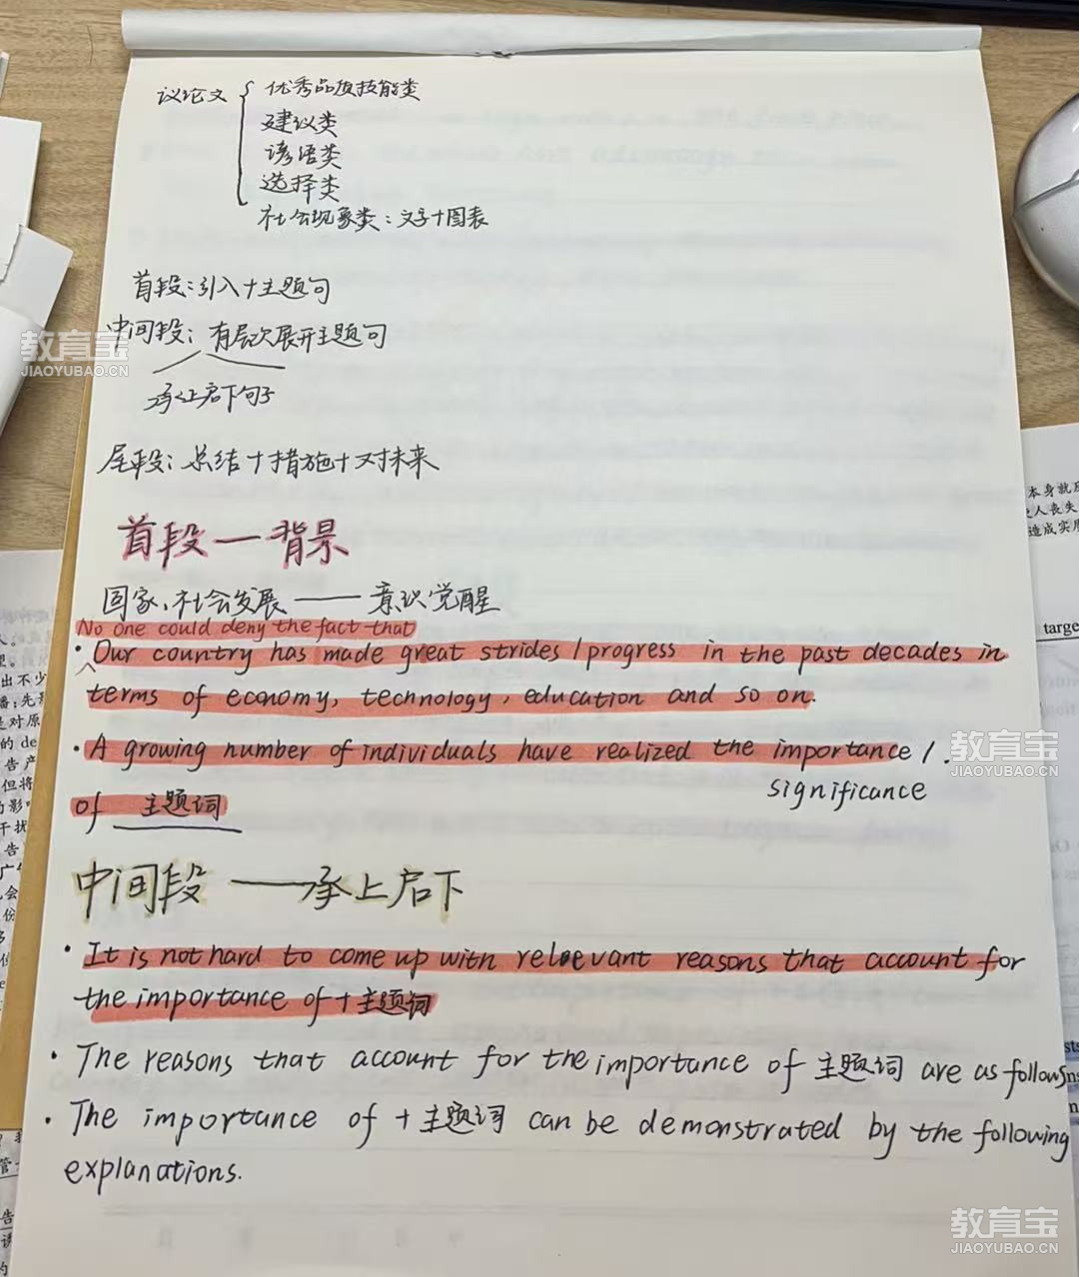 议论文 { 优秀品质技能类
建议类
谚语类
选择类
社会现象类：文字+图表
首段：引入+主题句
中间段：有层次展开主题句
承上启下句子
尾段：总结+措施+对未来
首段—背景
国家、社会发展——意识觉醒
No one could deny the fact that
· Our country has made great strides / progress in the past decades in
terms of economy, technology, education and so on.
· A growing number of individuals have realized the importance / .
significance
of 主题词
中间段——承上启下
· It is not hard to come up with relevant reasons that account for
the importance of + 主题词
· The reasons that account for the importance of 主题词 are as follows
· The importance of + 主题词 can be demonstrated by the following
explanations.
教育宝
JIAOYUBAO.CN
教育宝
JIAOYUBAO.CN
教育宝
JIAOYUBAO.CN
本身就
人丧失
造成实
targe
出不少
是对原
的 de
告产
但将